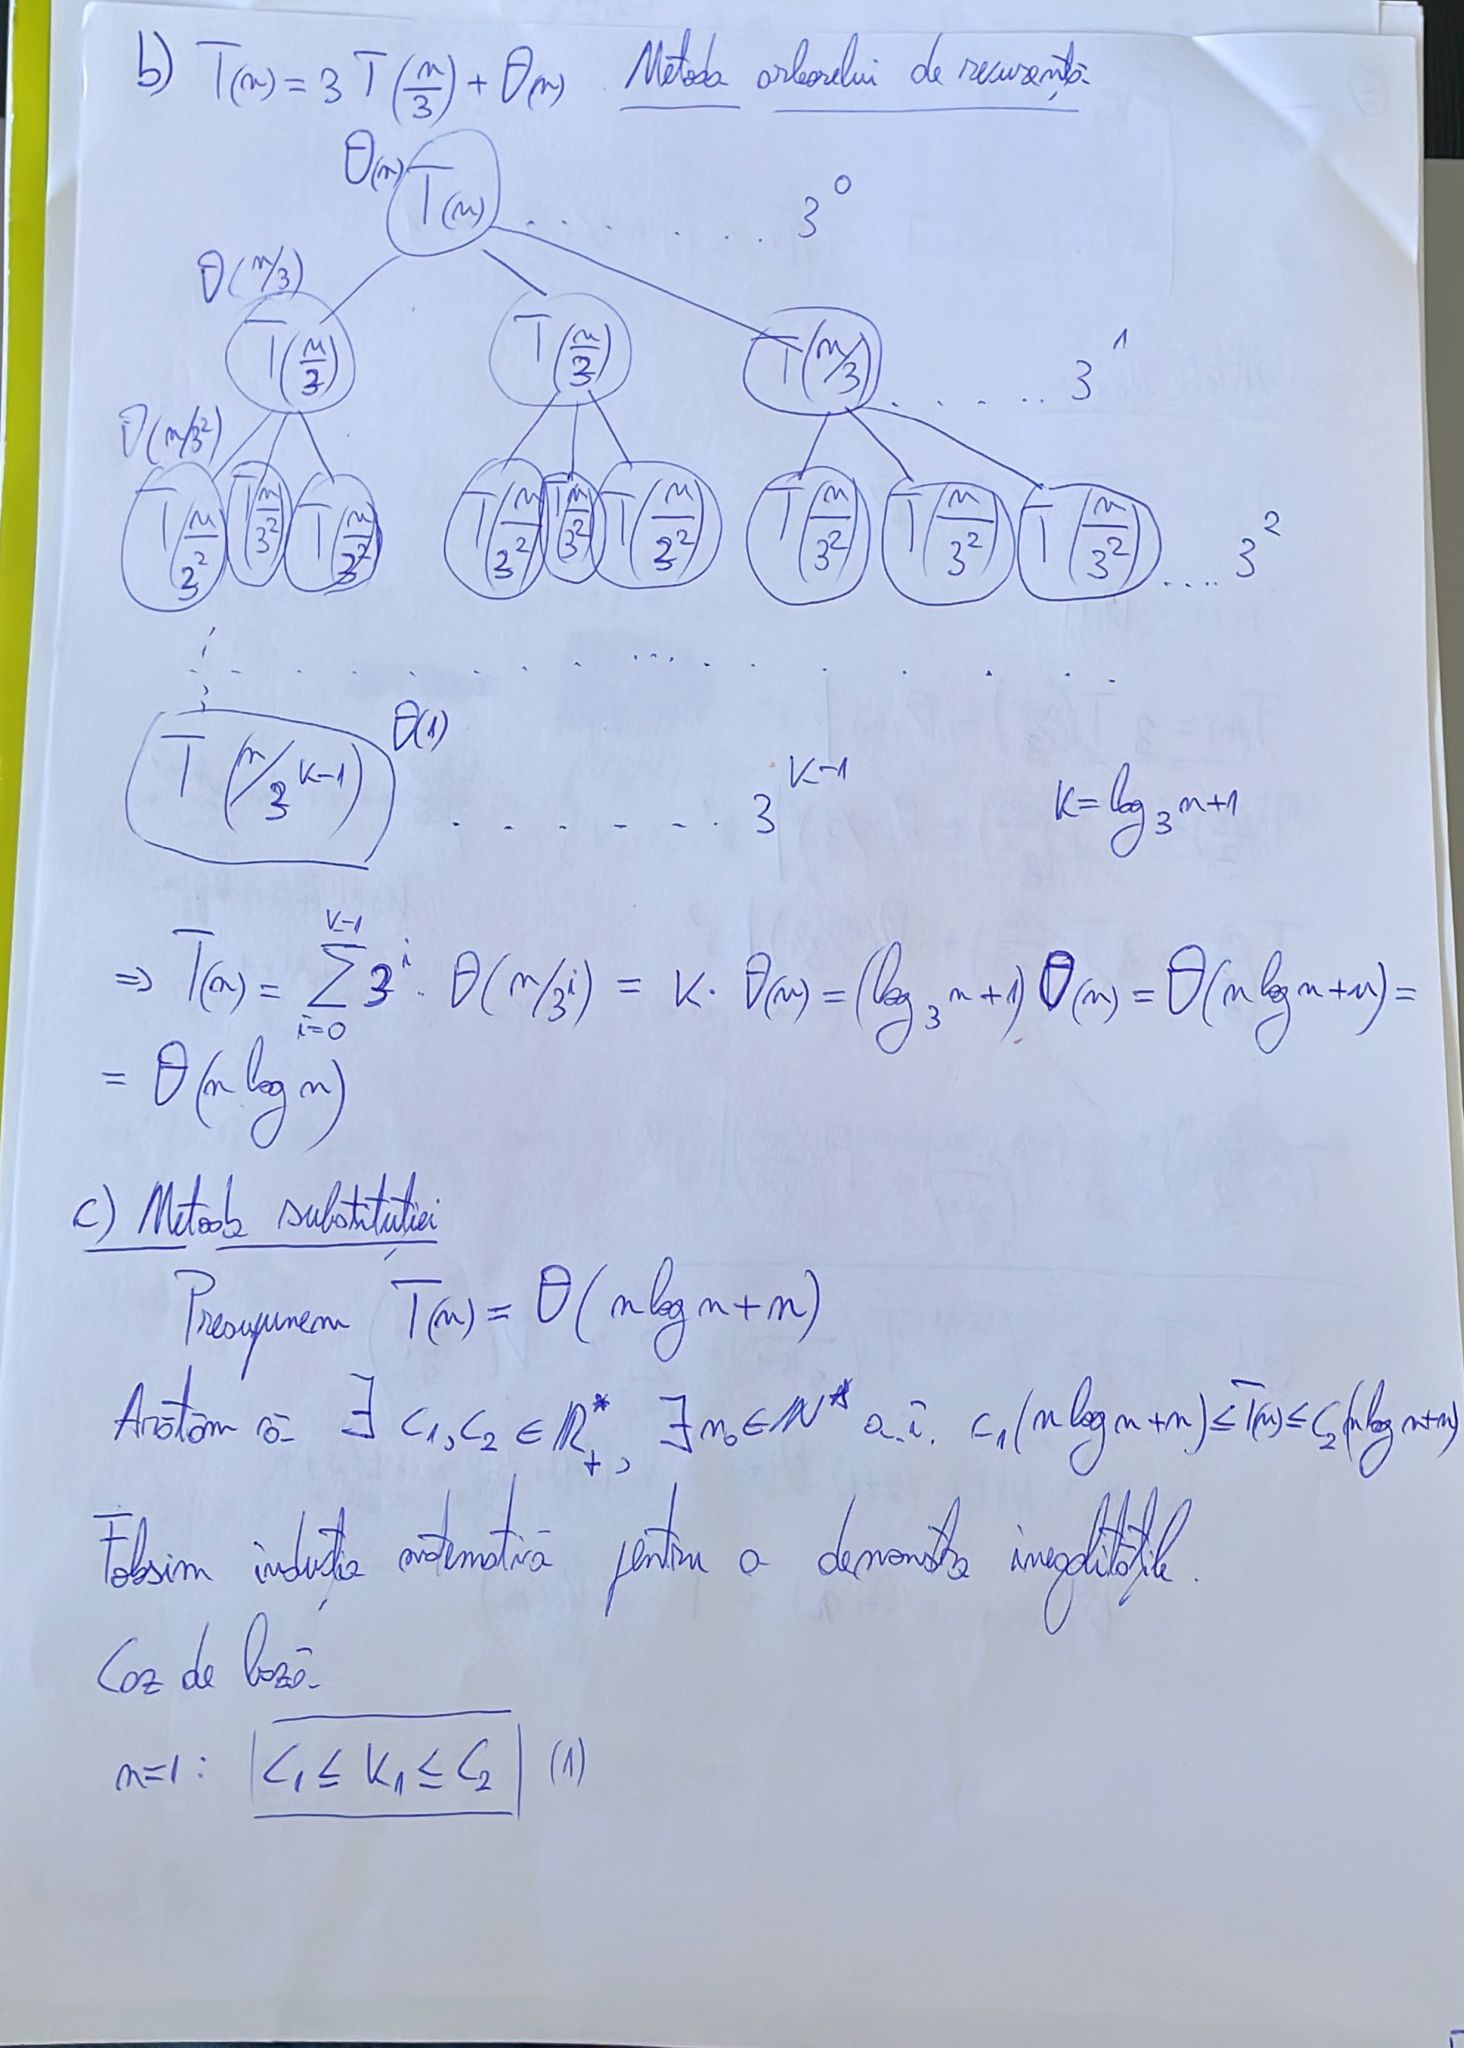 b) T(n) = 3 T(n/3) + Θ(n) Metoda arborelui de recurență
Θ(n) T(n) . . . . . . . 3^0
Θ(n/3)
T(n/3) T(n/3) T(n/3) . . . . . . 3^1
Θ(n/3^2)
T(n/3^2) T(n/3^2) T(n/3^2) T(n/3^2) T(n/3^2) T(n/3^2) T(n/3^2) T(n/3^2) T(n/3^2) .... 3^2
T(n/3^{k-1}) Θ(1) . . . . . . . 3^{k-1} k = log_3 n+1
⇒ T(n) = Σ_{i=0}^{k-1} 3^i · Θ(n/3^i) = k · Θ(n) = (log_3 n+1) Θ(n) = Θ(n log n + n) =
= Θ(n log n)
c) Metoda substituției
Presupunem T(n) = Θ(n log n + n)
Arătăm că ∃ c_1, c_2 ∈ R_+^*, ∃ n_0 ∈ N* a.î. c_1(n log n + n) ≤ T(n) ≤ c_2(n log n+n)
Folosim inducția matematică pentru a demonstra inegalitățile.
Caz de bază
n=1: c_1 ≤ k_1 ≤ c_2 (1)